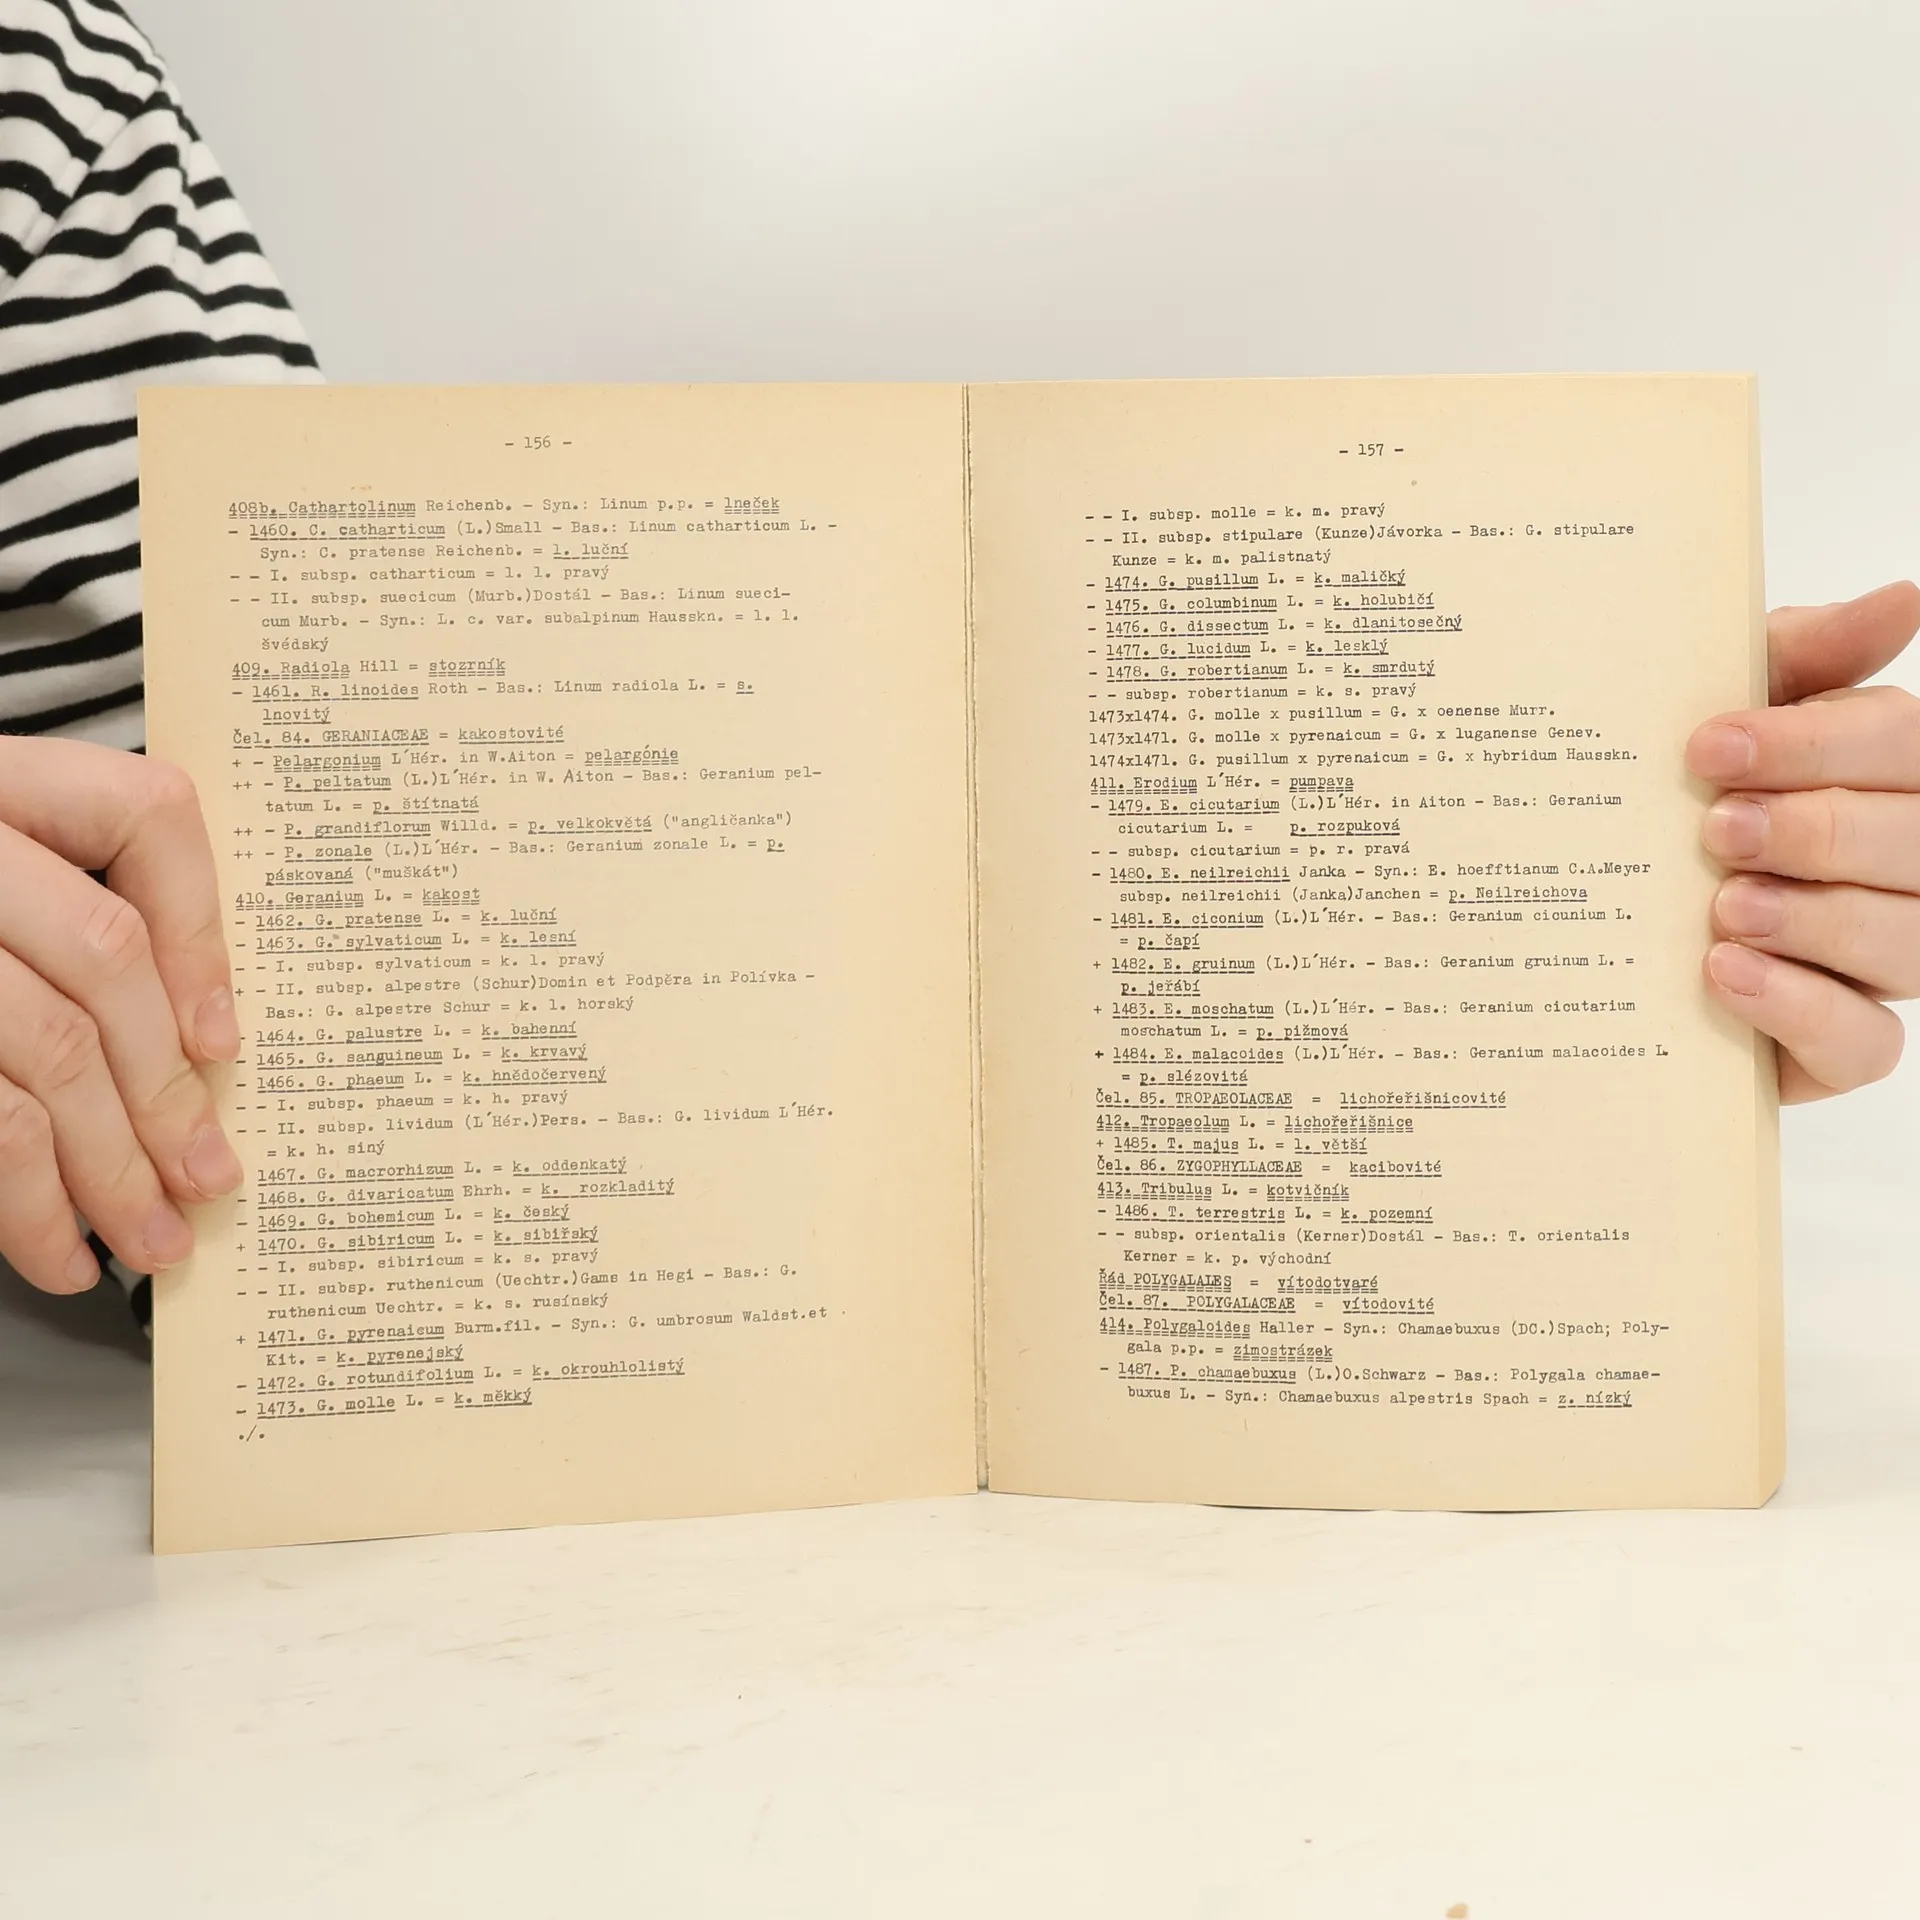 - 156 -
408b. Cathartolinum Reichenb. - Syn.: Linum p.p. = lneček
- 1460. C. catharticum (L.)Small - Bas.: Linum catharticum L. -
Syn.: C. pratense Reichenb. = l. luční
- - I. subsp. catharticum = l. l. pravý
- - II. subsp. suecicum (Murb.)Dostál - Bas.: Linum sueci-
cum Murb. - Syn.: L. c. var. subalpinum Hausskn. = l. l.
švédský
409. Radiola Hill = stozrník
- 1461. R. linoides Roth - Bas.: Linum radiola L. = s.
lnovitý
Čel. 84. GERANIACEAE = kakostovité
+ - Pelargonium L´Hér. in W.Aiton = pelargónie
++ - P. peltatum (L.)L´Hér. in W. Aiton - Bas.: Geranium pel-
tatum L. = p. štítnatá
++ - P. grandiflorum Willd. = p. velkokvětá ("angličanka")
++ - P. zonale (L.)L´Hér. - Bas.: Geranium zonale L. = p.
páskovaná ("muškát")
410. Geranium L. = kakost
- 1462. G. pratense L. = k. luční
- 1463. G. sylvaticum L. = k. lesní
- - I. subsp. sylvaticum = k. l. pravý
+ - II. subsp. alpestre (Schur)Domin et Podpěra in Polívka -
Bas.: G. alpestre Schur = k. l. horský
- 1464. G. palustre L. = k. bahenní
- 1465. G. sanguineum L. = k. krvavý
- 1466. G. phaeum L. = k. hnědočervený
- - I. subsp. phaeum = k. h. pravý
- - II. subsp. lividum (L´Hér.)Pers. - Bas.: G. lividum L´Hér.
= k. h. siný
1467. G. macrorhizum L. = k. oddenkatý
- 1468. G. divaricatum Ehrh. = k. rozkladitý
- 1469. G. bohemicum L. = k. český
+ 1470. G. sibiricum L. = k. sibiřský
- - I. subsp. sibiricum = k. s. pravý
- - II. subsp. ruthenicum (Uechtr.)Gams in Hegi - Bas.: G.
ruthenicum Uechtr. = k. s. rusínský
+ 1471. G. pyrenaicum Burm.fil. - Syn.: G. umbrosum Waldst.et
Kit. = k. pyrenejský
- 1472. G. rotundifolium L. = k. okrouhlolistý
- 1473. G. molle L. = k. měkký
./.
- 157 -
- - I. subsp. molle = k. m. pravý
- - II. subsp. stipulare (Kunze)Jávorka - Bas.: G. stipulare
Kunze = k. m. palistnatý
- 1474. G. pusillum L. = k. maličký
- 1475. G. columbinum L. = k. holubičí
- 1476. G. dissectum L. = k. dlanitosečný
- 1477. G. lucidum L. = k. lesklý
- 1478. G. robertianum L. = k. smrdutý
- - subsp. robertianum = k. s. pravý
1473x1474. G. molle x pusillum = G. x oenense Murr.
1473x1471. G. molle x pyrenaicum = G. x luganense Genev.
1474x1471. G. pusillum x pyrenaicum = G. x hybridum Hausskn.
411. Erodium L´Hér. = pumpava
- 1479. E. cicutarium (L.)L´Hér. in Aiton - Bas.: Geranium
cicutarium L. = p. rozpuková
- - subsp. cicutarium = p. r. pravá
- 1480. E. neilreichii Janka - Syn.: E. hoefftianum C.A.Meyer
subsp. neilreichii (Janka)Janchen = p. Neilreichova
- 1481. E. ciconium (L.)L´Hér. - Bas.: Geranium cicunium L.
= p. čapí
+ 1482. E. gruinum (L.)L´Hér. - Bas.: Geranium gruinum L. =
p. jeřábí
+ 1483. E. moschatum (L.)L´Hér. - Bas.: Geranium cicutarium
moschatum L. = p. pižmová
+ 1484. E. malacoides (L.)L´Hér. - Bas.: Geranium malacoides L.
= p. slézovitá
Čel. 85. TROPAEOLACEAE = lichořeřišnicovité
412. Tropaeolum L. = lichořeřišnice
+ 1485. T. majus L. = l. větší
Čel. 86. ZYGOPHYLLACEAE = kacibovité
413. Tribulus L. = kotvičník
- 1486. T. terrestris L. = k. pozemní
- - subsp. orientalis (Kerner)Dostál - Bas.: T. orientalis
Kerner = k. p. východní
Řád POLYGALALES = vítodotvaré
Čel. 87. POLYGALACEAE = vítodovité
414. Polygaloides Haller - Syn.: Chamaebuxus (DC.)Spach; Poly-
gala p.p. = zimostrázek
- 1487. P. chamaebuxus (L.)O.Schwarz - Bas.: Polygala chamae-
buxus L. - Syn.: Chamaebuxus alpestris Spach = z. nízký